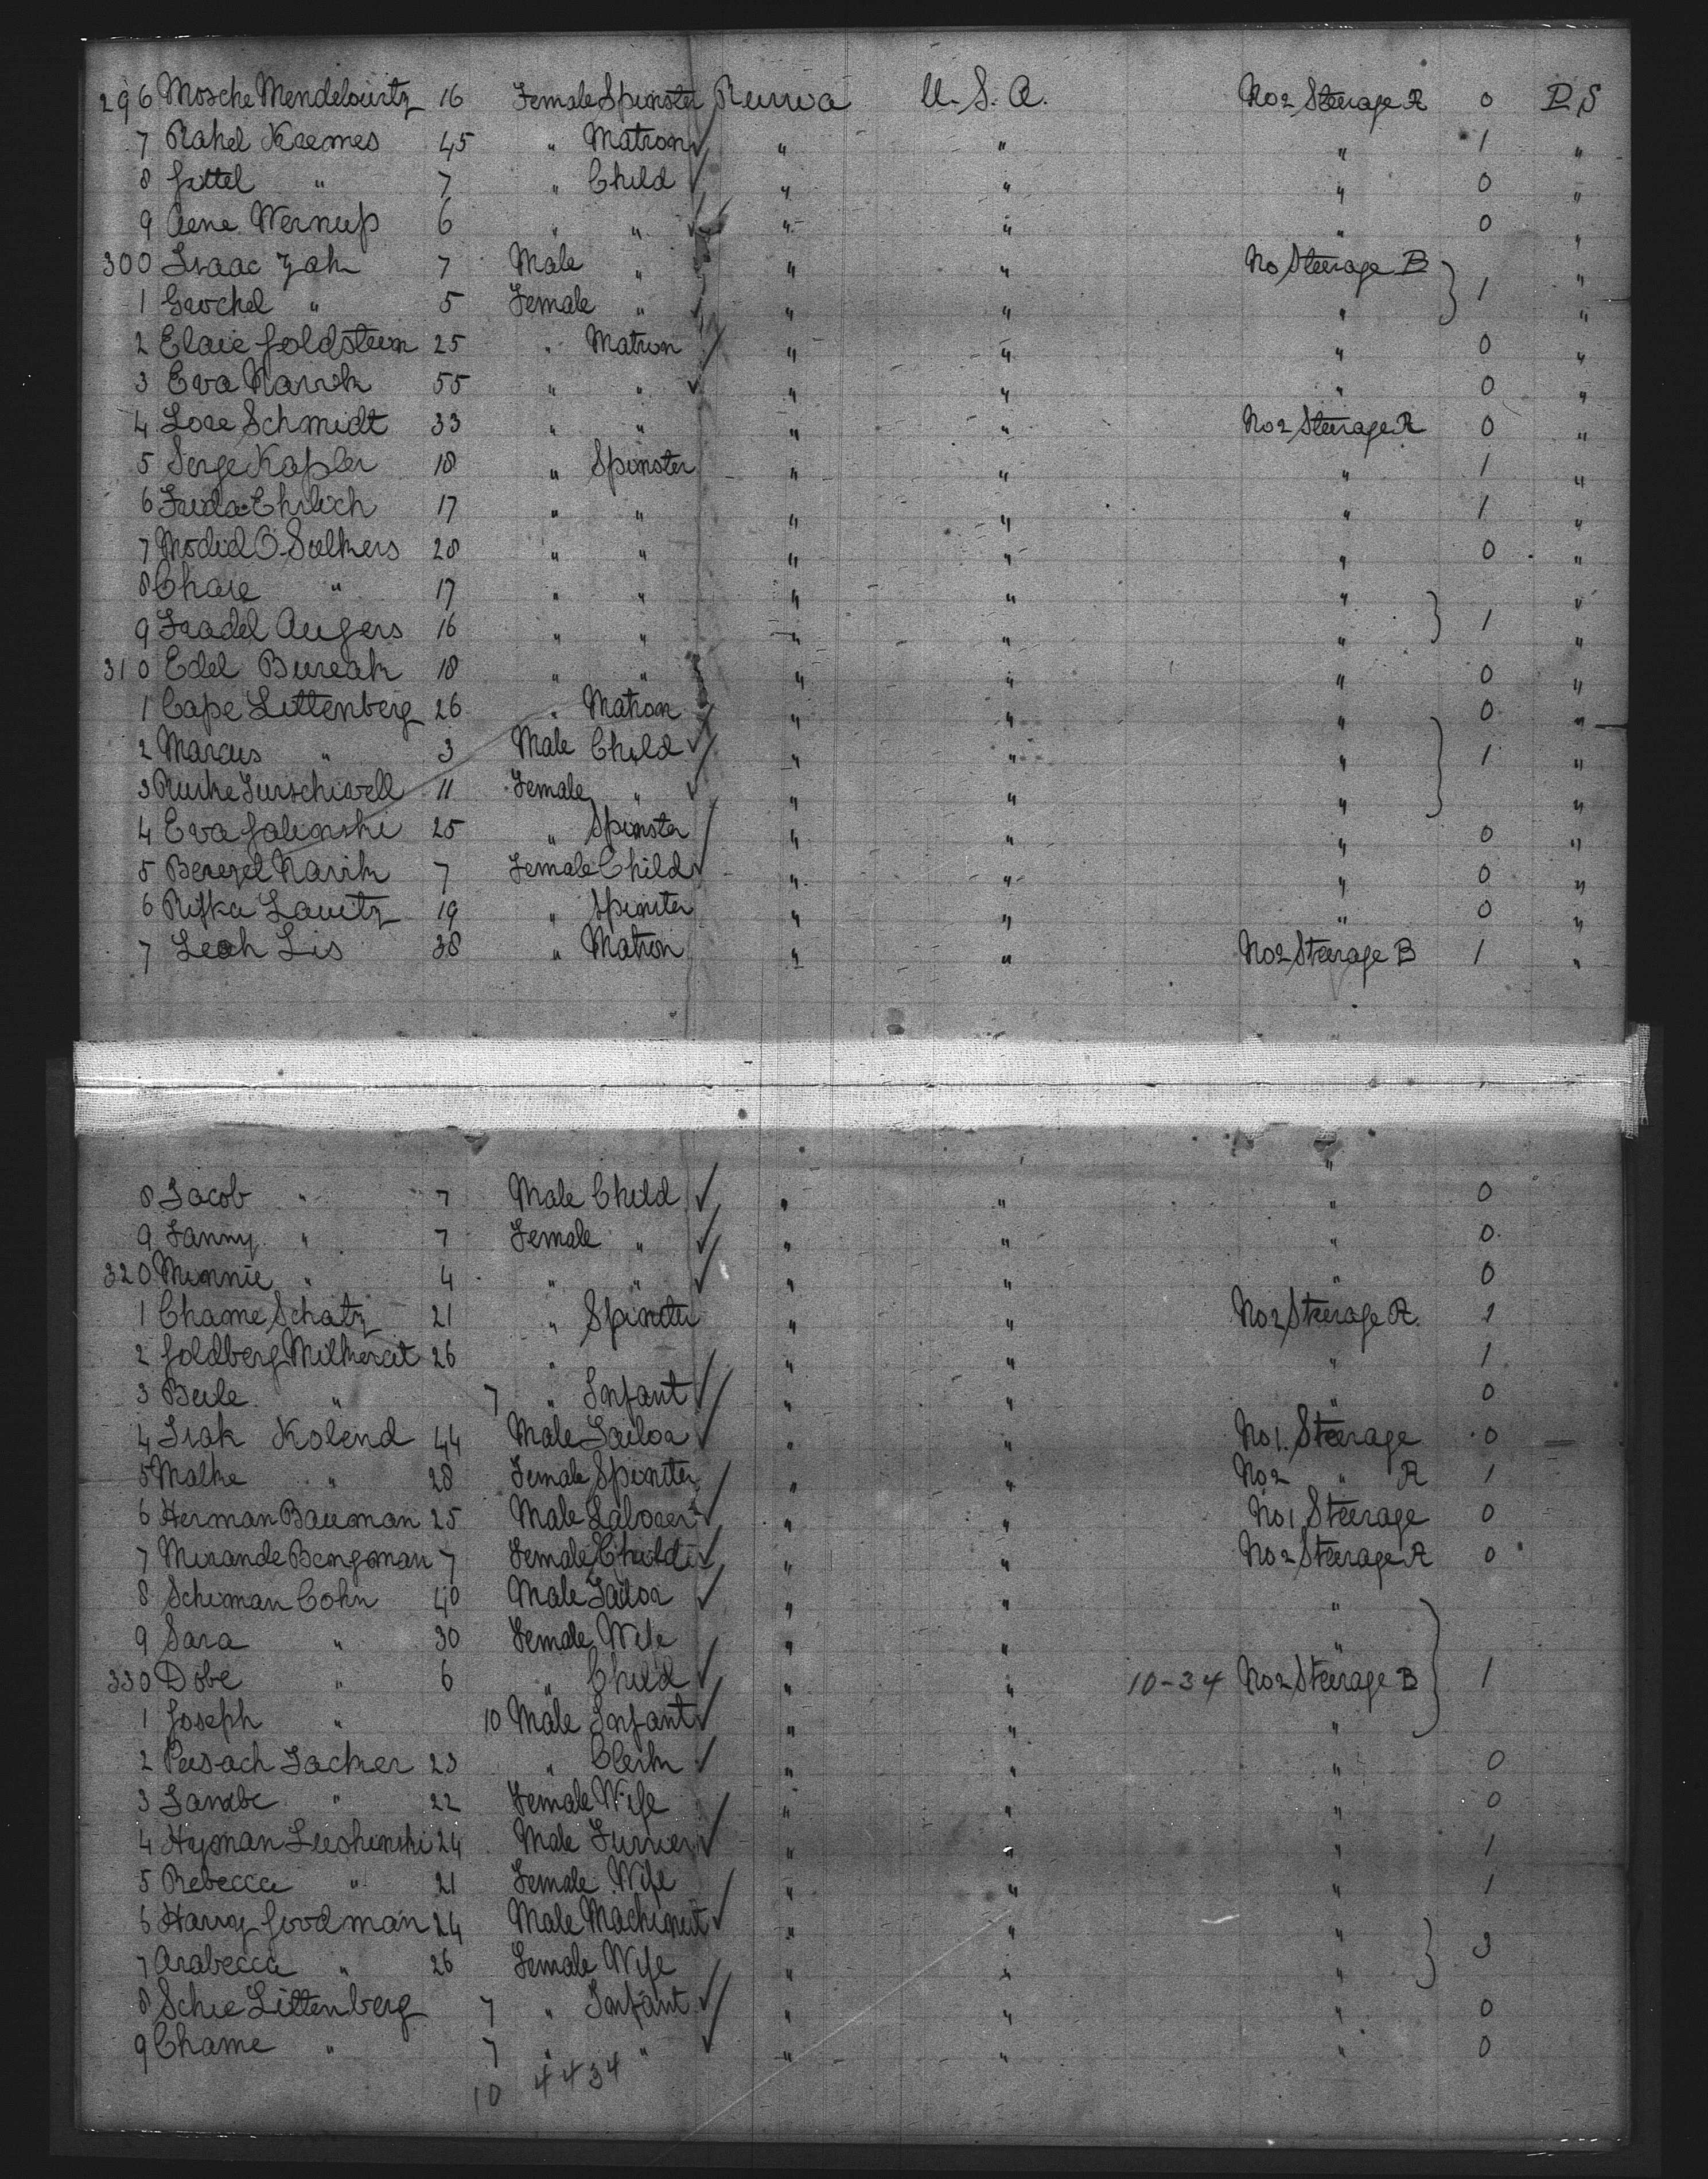 296 Mosche Mendelowitz 16 Female Spinster Russia U.S.A. No 2 Steerage A 0 P.S
7 Rahel Kremes 45 " Matron " " " 1 "
8 Gittel " 7 " Child " " " 0 "
9 Aene Wernup 6 " " " " " 0 "
300 Isaac Zak 7 Male " " " No Steerage B "
1 Gerochel " 5 Female " " " " 1 "
2 Elaie Goldsteen 25 " Matron " " " 0 "
3 Eva Narvik 55 " " " " " 0 "
4 Lore Schmidt 33 " " " " No 2 Steerage A 0 "
5 Serge Kapler 18 " Spinster " " " 1 "
6 Freida Ehrlich 17 " " " " " 1 "
7 Modid O. Sulkers 28 " " " " " 0 "
8 Chare " 17 " " " " " "
9 Fradel Augers 16 " " " " " 1 "
310 Edel Bureak 18 " " " " " 0 "
1 Cape Littenberg 26 " Matron " " " 0 "
2 Marcus " 3 Male Child " " " 1 "
3 Ruske Turschwell 11 Female " " " " "
4 Eva Galinski 25 " Spinster " " " 0 "
5 Berezel Narik 7 Female Child " " " 0 "
6 Rifka Lavitz 19 " Spinster " " " 0 "
7 Leah Lis 38 " Matron " " No 2 Steerage B 1 "
"
8 Jacob " 7 Male Child " " " 0
9 Fanny " 7 Female " " " " 0
320 Minnie " 4 " " " " " 0
1 Chame Schatz 21 " Spinster " " No 2 Steerage A 1
2 Goldberg Milkereit 26 " " " " 1
3 Beile " 7 " Infant " " " 0
4 Isak Kolend 44 Male Tailor " " No 1. Steerage 0
5 Malke " 28 Female Spinster " " No 2 " A 1
6 Herman Bauman 25 Male Laborer " " No 1 Steerage 0
7 Mirande Bengoman 7 Female Child " " No 2 Steerage A 0
8 Schiman Cohn 40 Male Tailor " " "
9 Sara " 30 Female Wife " " "
330 Dobe " 6 " Child " " 10-34 No 2 Steerage B 1
1 Joseph " 10 Male Infant " " "
2 Peisach Sacker 23 " Clerk " " " 0
3 Sandbe " 22 Female Wife " " " 0
4 Hyman Leeshinski 24 Male Furrier " " " 1
5 Rebecca " 21 Female Wife " " " 1
6 Harry Goodman 24 Male Machinist " " "
7 Arabecca " 26 Female Wife " " " 3
8 Schie Littenberg 7 " Infant " " " 0
9 Chame " 7 " " " " " 0
10 4434